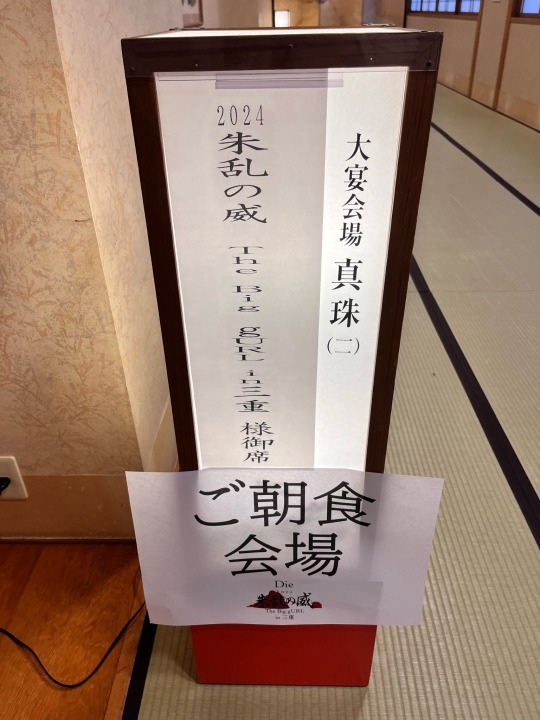 大宴会場 真珠(二)
2024 朱乱の威 The Big gURL in三重 様御席
ご朝食
会場
Die
朱乱の威
The Big gURL
in 三重